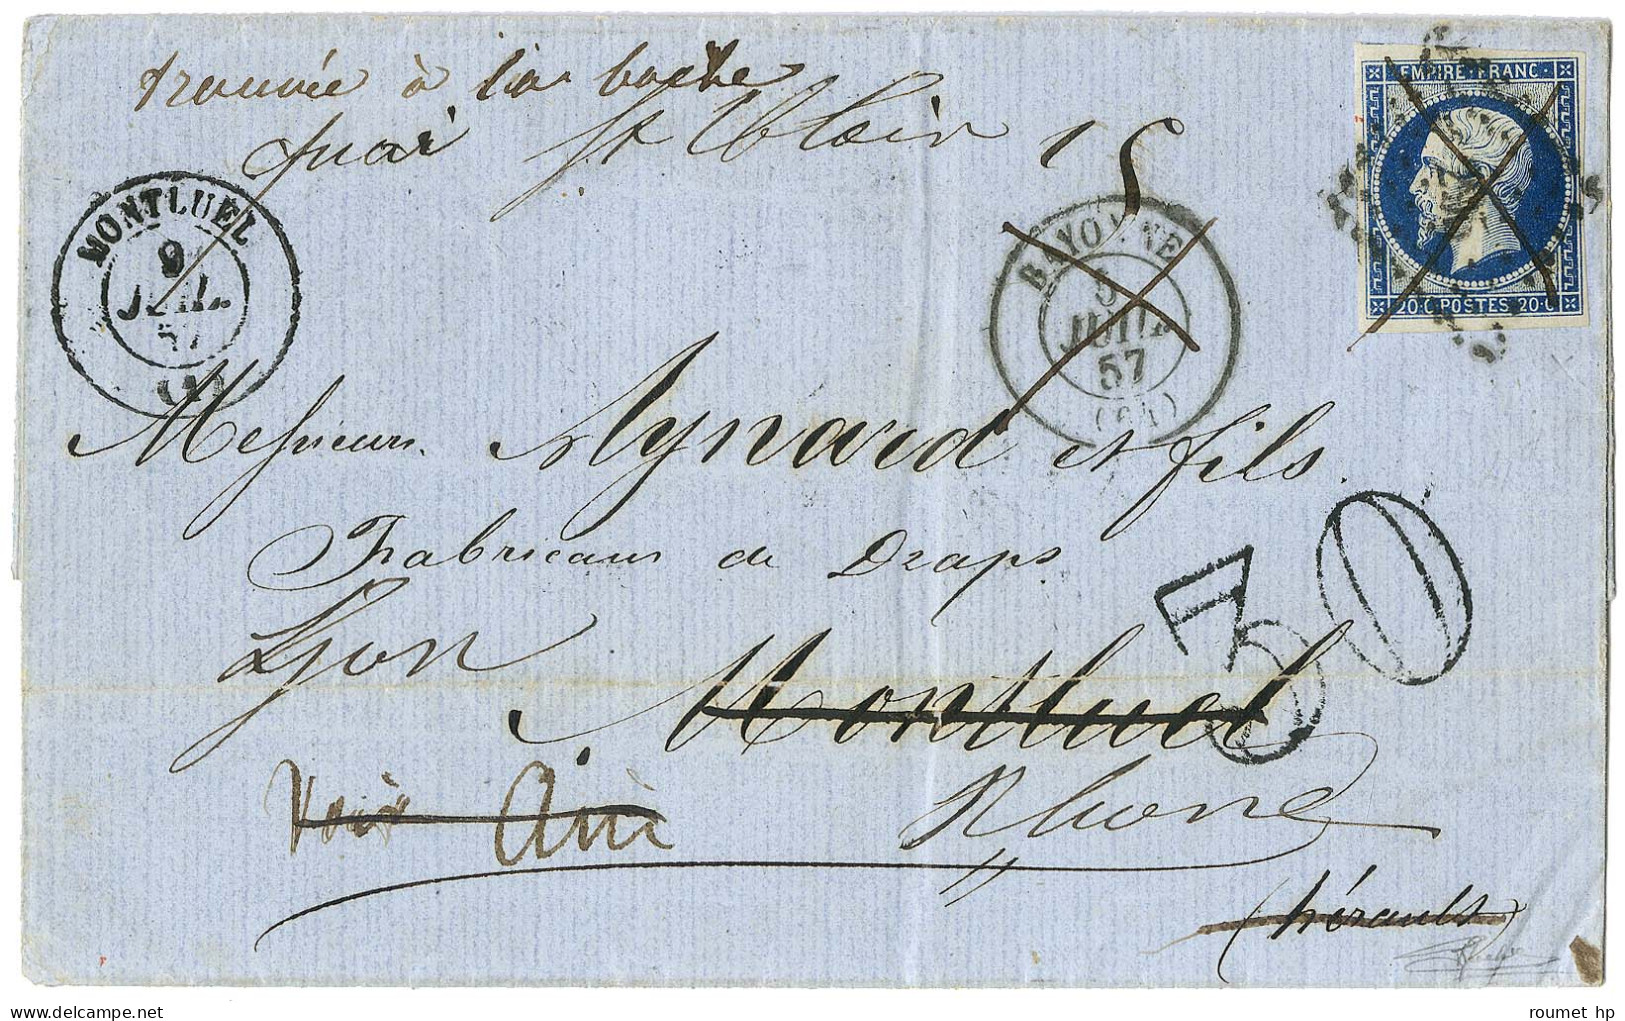 trouvée à la boete
quai St Clair 15
EMPIRE FRANC.
20.C POSTES 20.C
MONTLUEL
9
JUIL.
57
(1)
BAYONNE
5
JUIL.
57
(64)
Messieurs Aynard et fils
Fabricans de Draps
Lyon
Montluel
30
Voir Ain
Rhone
(hérault)
roumet hp